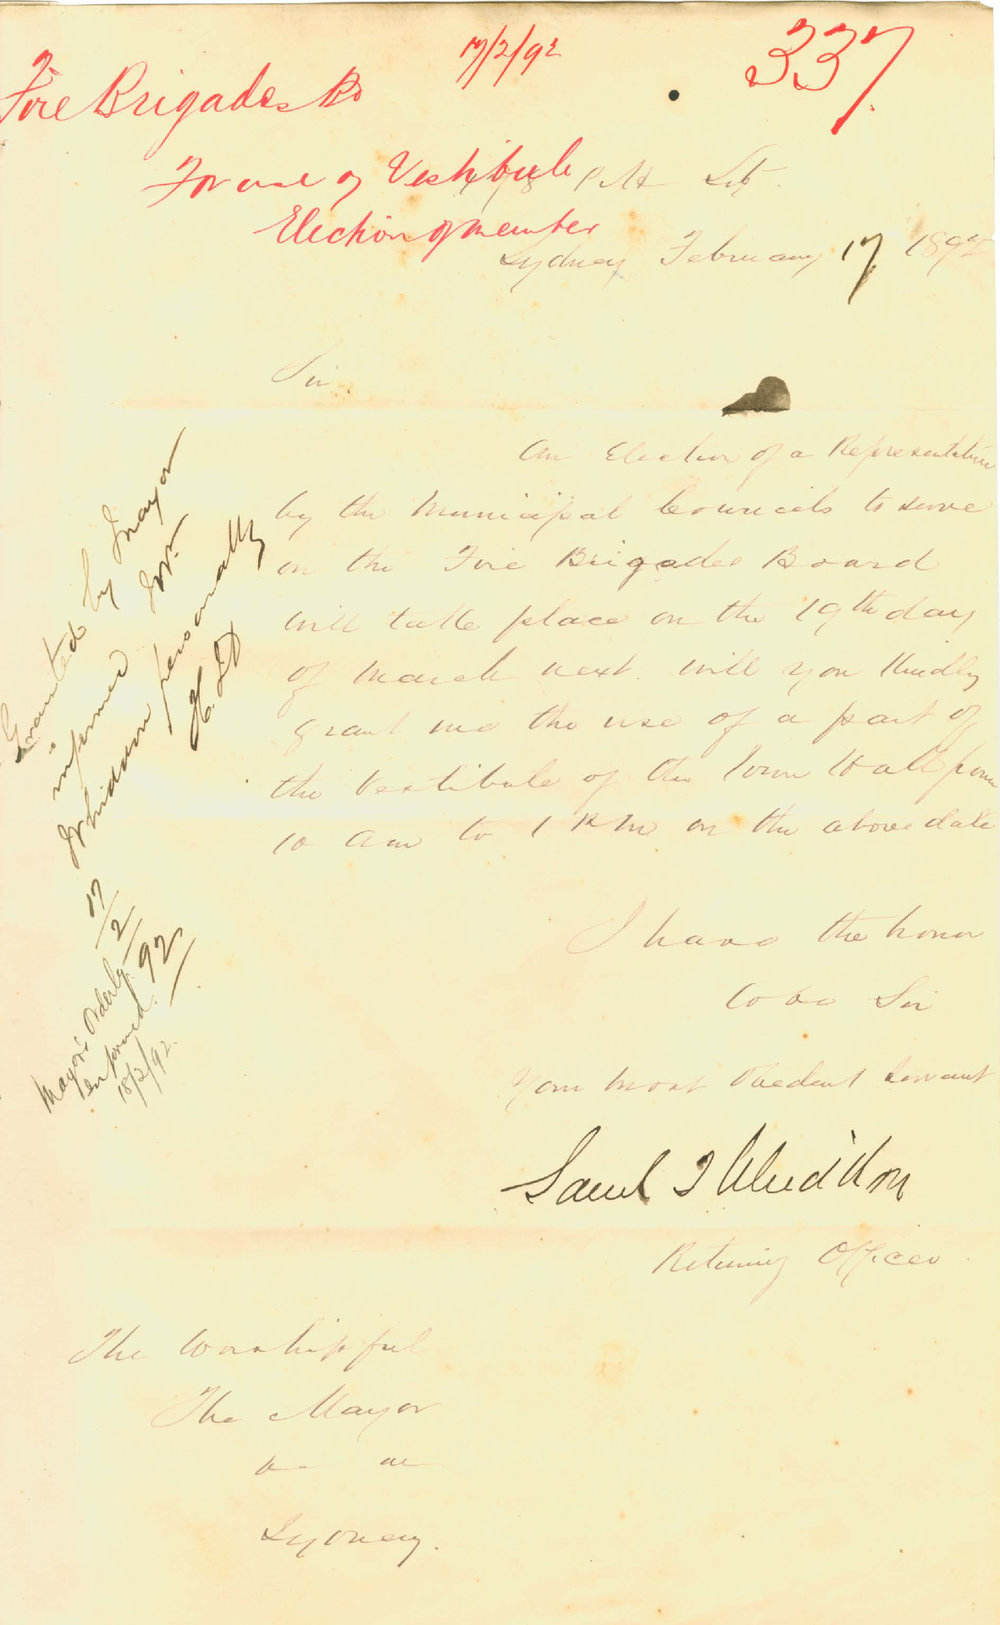 17/2/92
337
Fire Brigades Bd
For use of Vestibule
Election of member
Pitt St.
Sydney February 17 1892
Sir
An Election of a Representative
by the Municipal Councils to serve
on the Fire Brigades Board
will take place on the 19th day
of March next. Will you kindly
grant me the use of a part of
the Vestibule of the Town Hall from
10 am to 1 PM on the above date
I have the honor
to be Sir
Your most Obedient Servant
Saml T Whiddon
Returning Officer
The Worshipful
The Mayor
Sydney.
Granted by Mayor
informed Mr.
Whiddon personally
17/2/92
Mayor's Orderly
informed.
18/2/92.